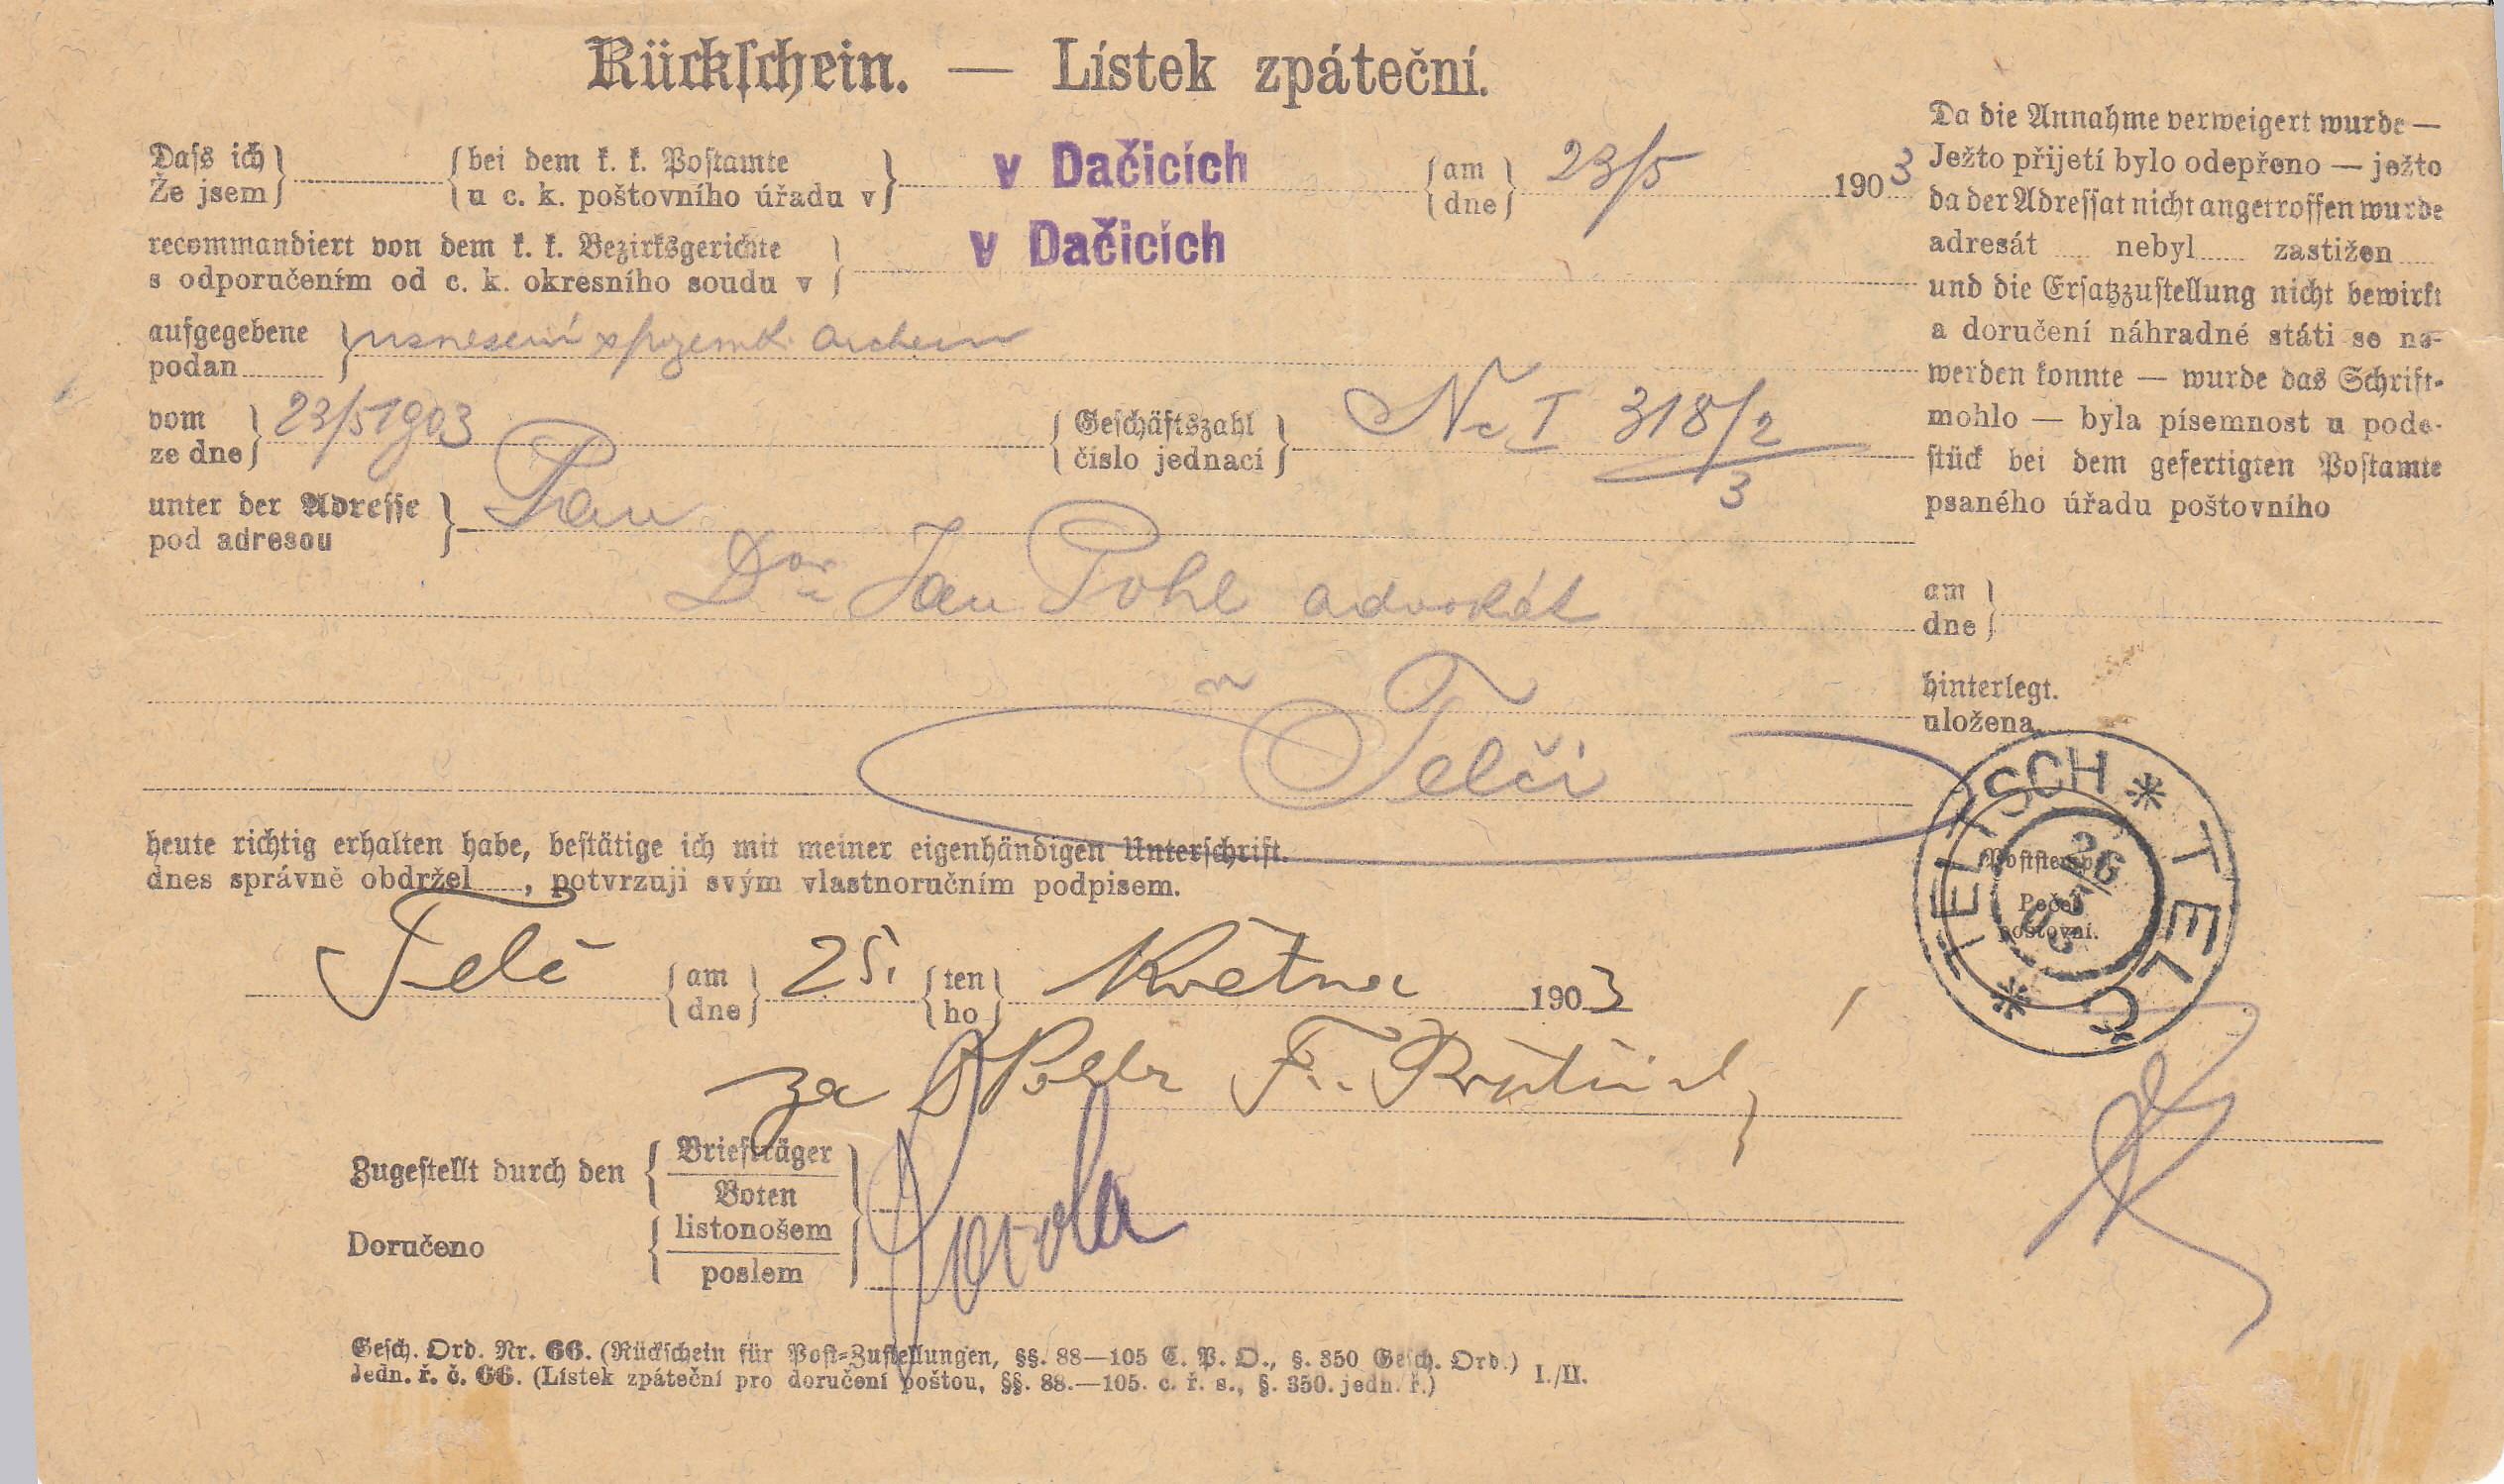 Rückſchein. — Lístek zpáteční.
Daſs ich bei dem k. k. Poſtamte v Dačicích am 23/5 1903
Že jsem u c. k. poštovního úřadu v dne
recommandiert von dem k. k. Bezirksgerichte v Dačicích
s odporučením od c. k. okresního soudu v
aufgegebene usnesení
podan
vom 23/5 1903 Geſchäftszahl Nc I 318/2
ze dne číslo jednací 3
unter der Adreſſe Pan
pod adresou
Dor Jan Pohl advokát
v Telči
heute richtig erhalten habe, beſtätige ich mit meiner eigenhändigen Unterſchrift.
dnes správně obdržel , potvrzuji svým vlastnoručním podpisem.
Telč am 25. ten Května 1903
dne ho
za F.
Zugeſtellt durch den Briefträger
Boten
Doručeno listonošem
poslem
Geſch. Ord. Nr. 66. (Rückſchein für Poſt=Zuſtellungen, §§. 88—105 C. P. O., §. 350 Geſch. Ord.)
Jedn. ř. č. 66. (Lístek zpáteční pro doručení poštou, §§. 88.—105. c. ř. s., §. 350. jedn. ř.) I./II.
Da die Annahme verweigert wurde —
Ježto přijetí bylo odepřeno — ježto
da der Adreſſat nicht angetroffen wurde
adresát nebyl zastižen
und die Erſatzzuſtellung nicht bewirkt
a doručení náhradné státi se ne-
werden konnte — wurde das Schrift-
mohlo — byla písemnost u pode-
ſtück bei dem gefertigten Poſtamte
psaného úřadu poštovního
am
dne
hinterlegt.
uložena
TELTSCH * TELČ *
26/5
03
Poſtſtemp
Peče
poštovní.